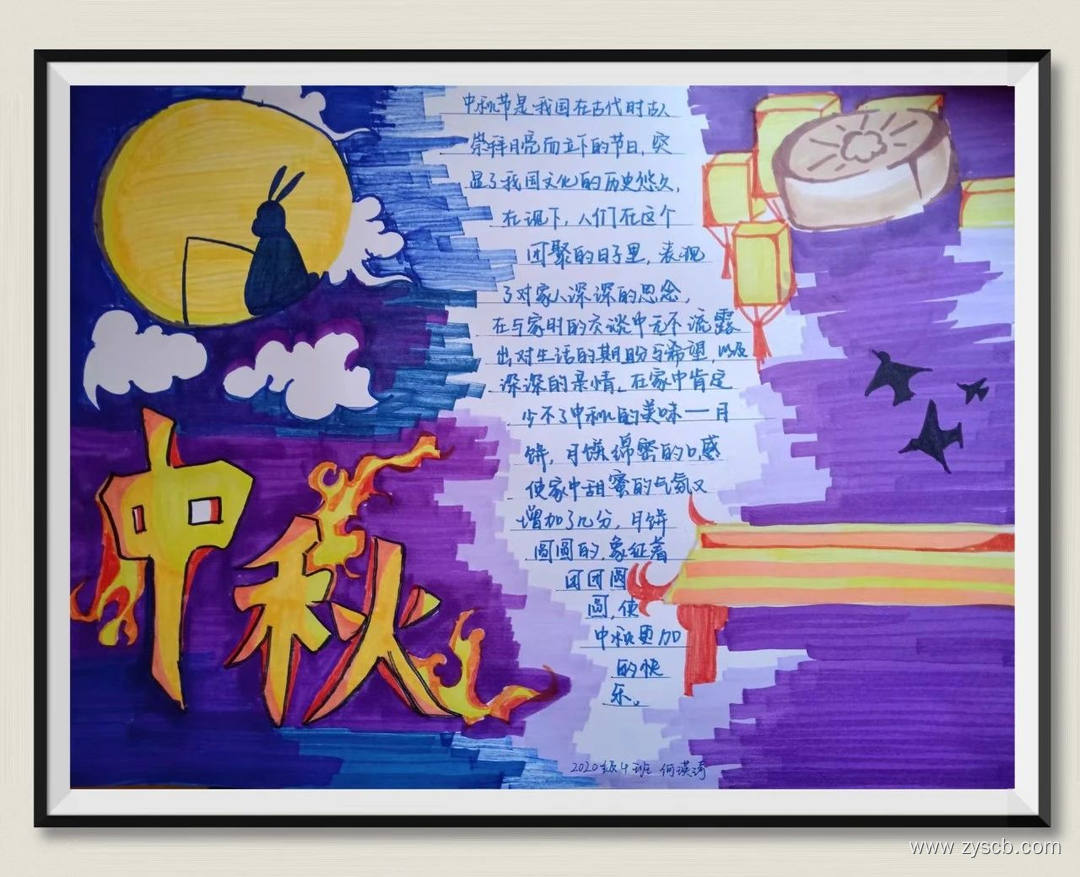 中秋节是我国在古代时古人
崇拜月亮而立下的节日,突
显了我国文化的历史悠久,
在现下,人们在这个
团聚的日子里,表现
了对家人深深的思念,
在与家时的交谈中无不流露
出对生活的期盼与希望,以及
深深的亲情。在家中肯定
少不了中秋的美味——月
饼,月饼绵密的口感
使家中甜蜜的气氛又
增加了几分,月饼
圆圆的,象征着
团团圆
圆,使
中秋更加
的快
乐。
中秋
2020级4班 何
www.zyscb.com